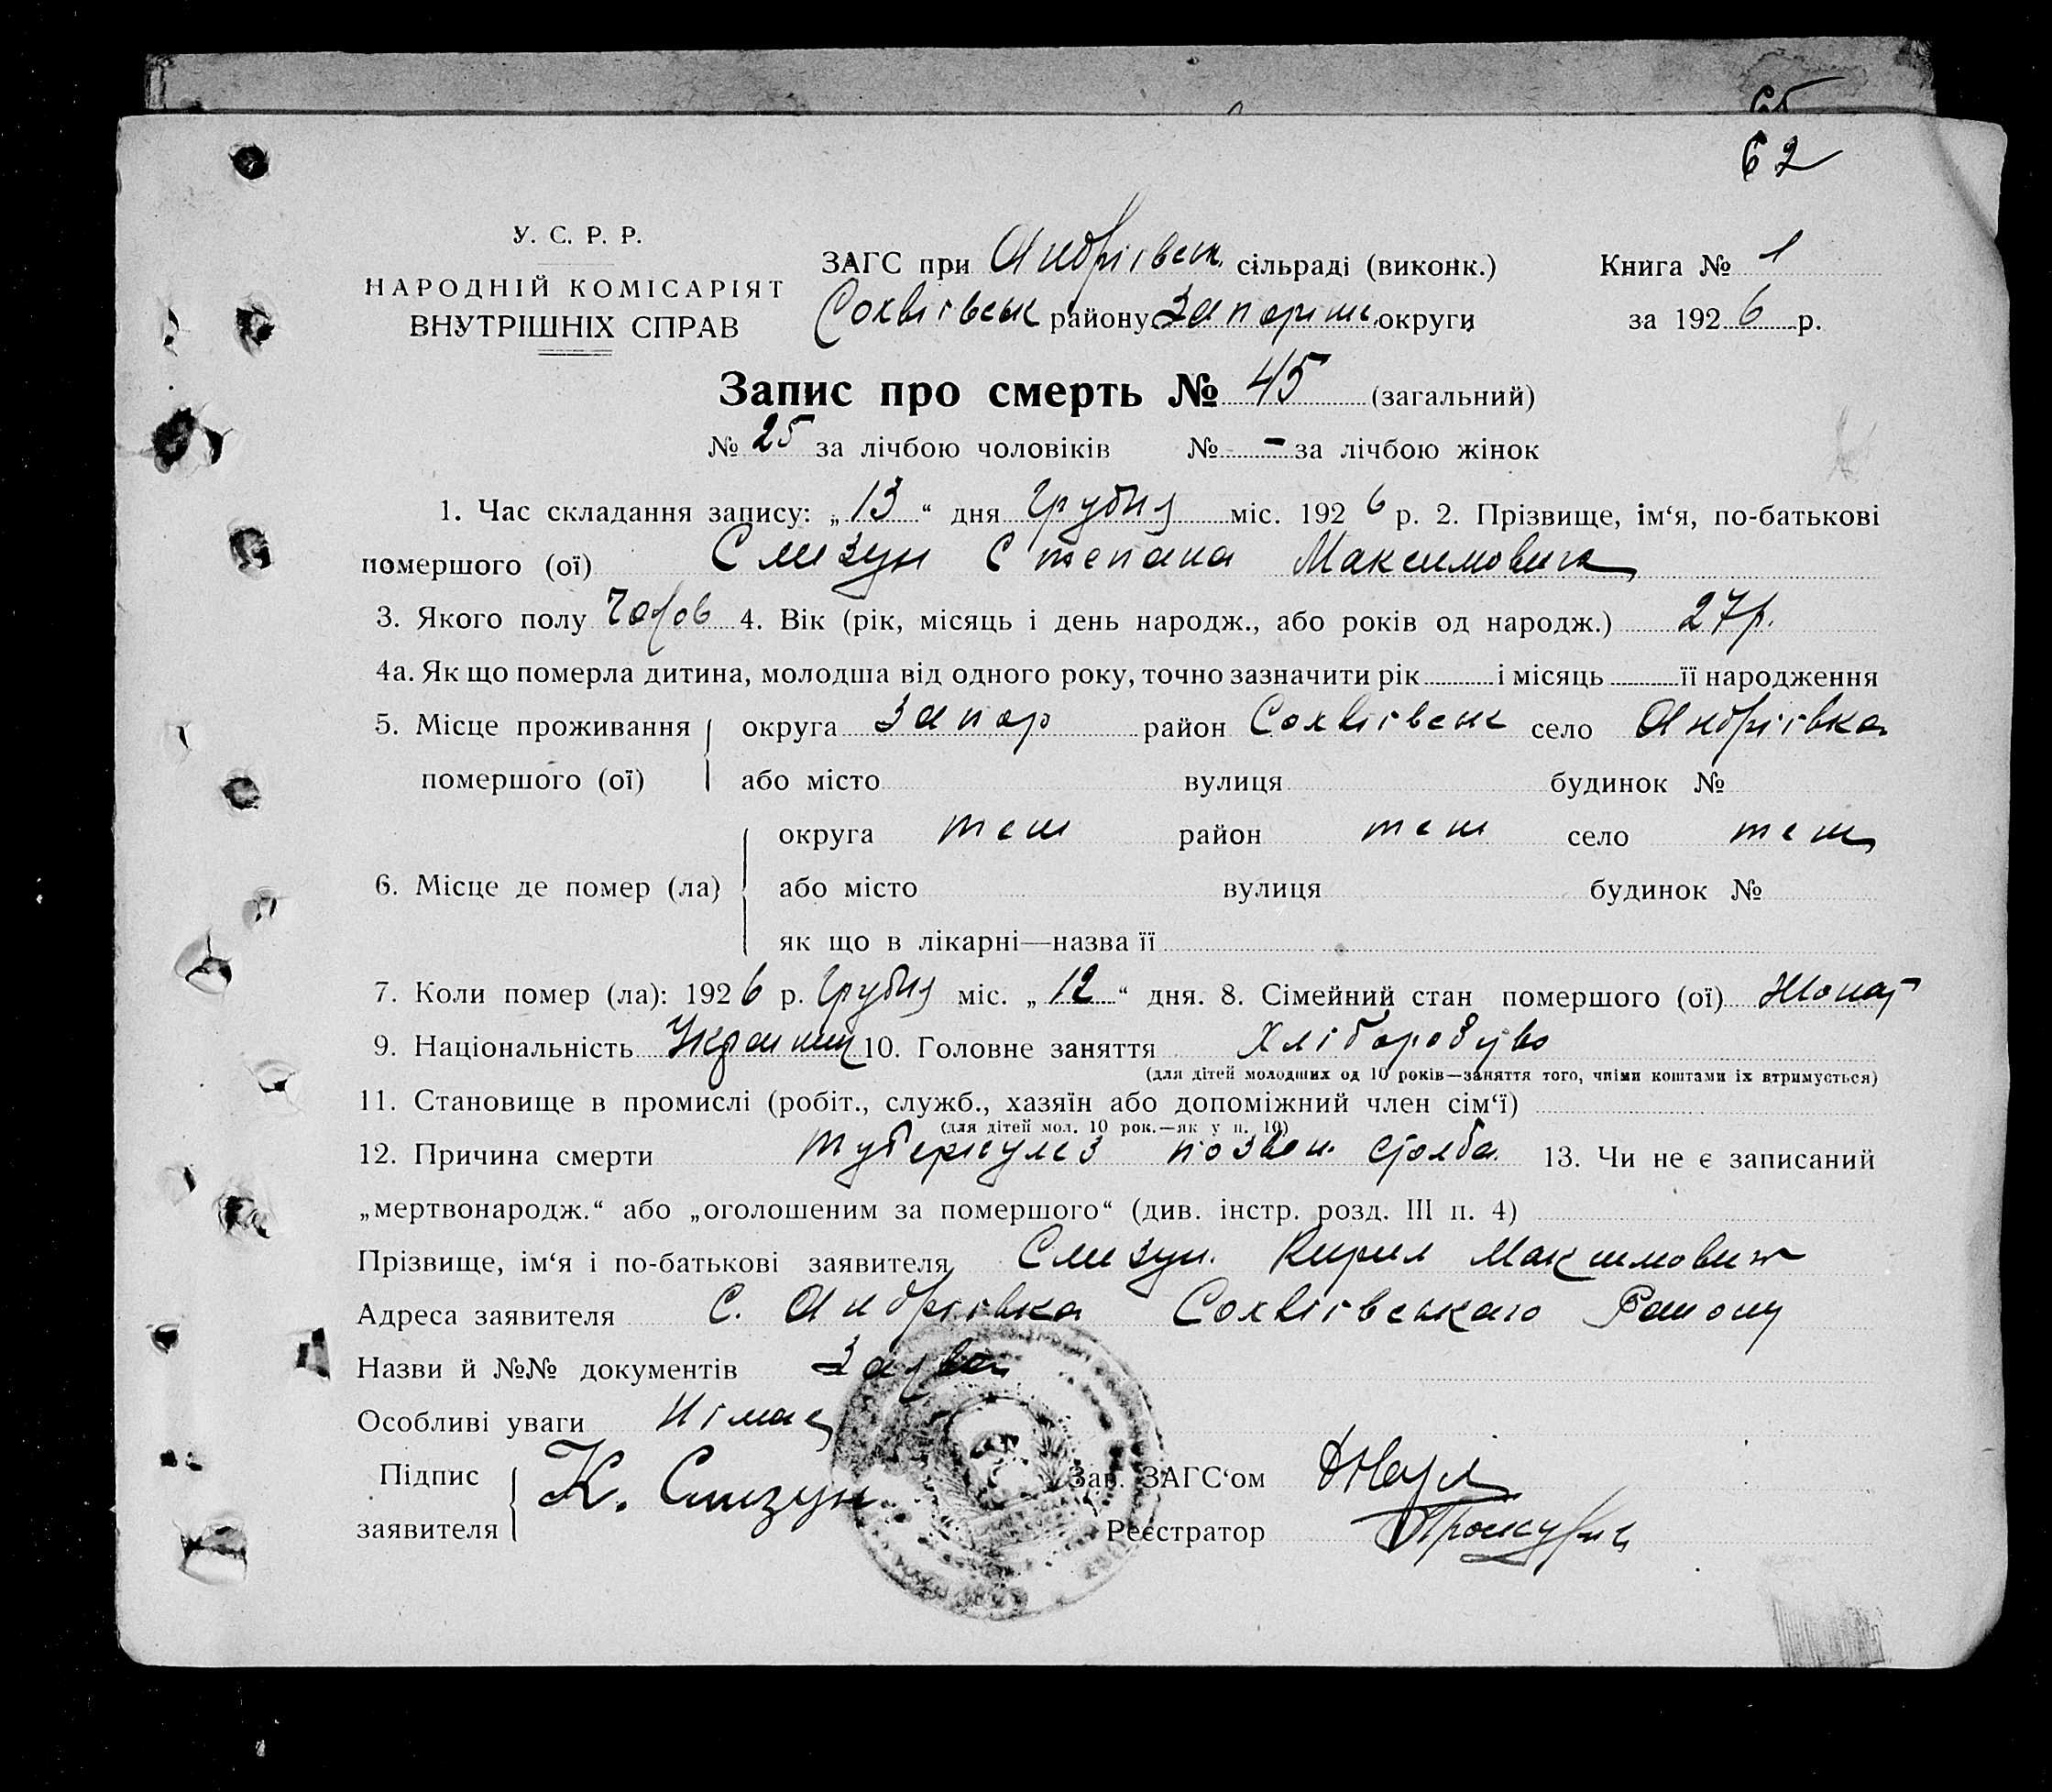 62
У. С. Р. Р.
НАРОДНІЙ КОМІСАРІЯТ
ВНУТРІШНІХ СПРАВ
ЗАГС при Андріївськ. сільраді (виконк.)
Софіївськ району Запоріж. округи
Книга № 1
за 1926 р.
Запис про смерть № 45 (загальний)
№ 25 за лічбою чоловіків № - за лічбою жінок
1. Час складання запису: „13“ дня Грудня міс. 1926 р. 2. Прізвище, ім‘я, по-батькові
помершого (ої) Слизун Степана Максимовича
3. Якого полу Чолов 4. Вік (рік, місяць і день народж., або років од народж.) 27 р.
4а. Як що померла дитина, молодша від одного року, точно зазначити рік і місяць її народження
5. Місце проживання округа Запор район Софіївськ село Андріївка
помершого (ої) або місто вулиця будинок №
округа теш район теш село теш
6. Місце де помер (ла) або місто вулиця будинок №
як що в лікарні—назва її
7. Коли помер (ла): 1926 р. Грудня міс. „12“ дня. 8. Сімейний стан помершого (ої) Жонат
9. Національність Украинц 10. Головне заняття Хліборобство
(для дітей молодших од 10 років—заняття того, чиїми коштами їх втримується)
11. Становище в промислі (робіт., служб., хазяїн або допоміжний член сім‘ї)
(для дітей мол. 10 рок.—як у п. 10)
12. Причина смерти туберкулез позвон. столба 13. Чи не є записаний
„мертвонародж.“ або „оголошеним за помершого“ (див. інстр. розд. III п. 4)
Прізвище, ім‘я і по-батькові заявителя Слизун. Кирил Максимович
Адреса заявителя С. Андріївка Софіївського Району
Назви й №№ документів Заява
Особливі уваги Німає
Підпис
заявителя К. Слизун
Зав. ЗАГС‘ом
Реєстратор